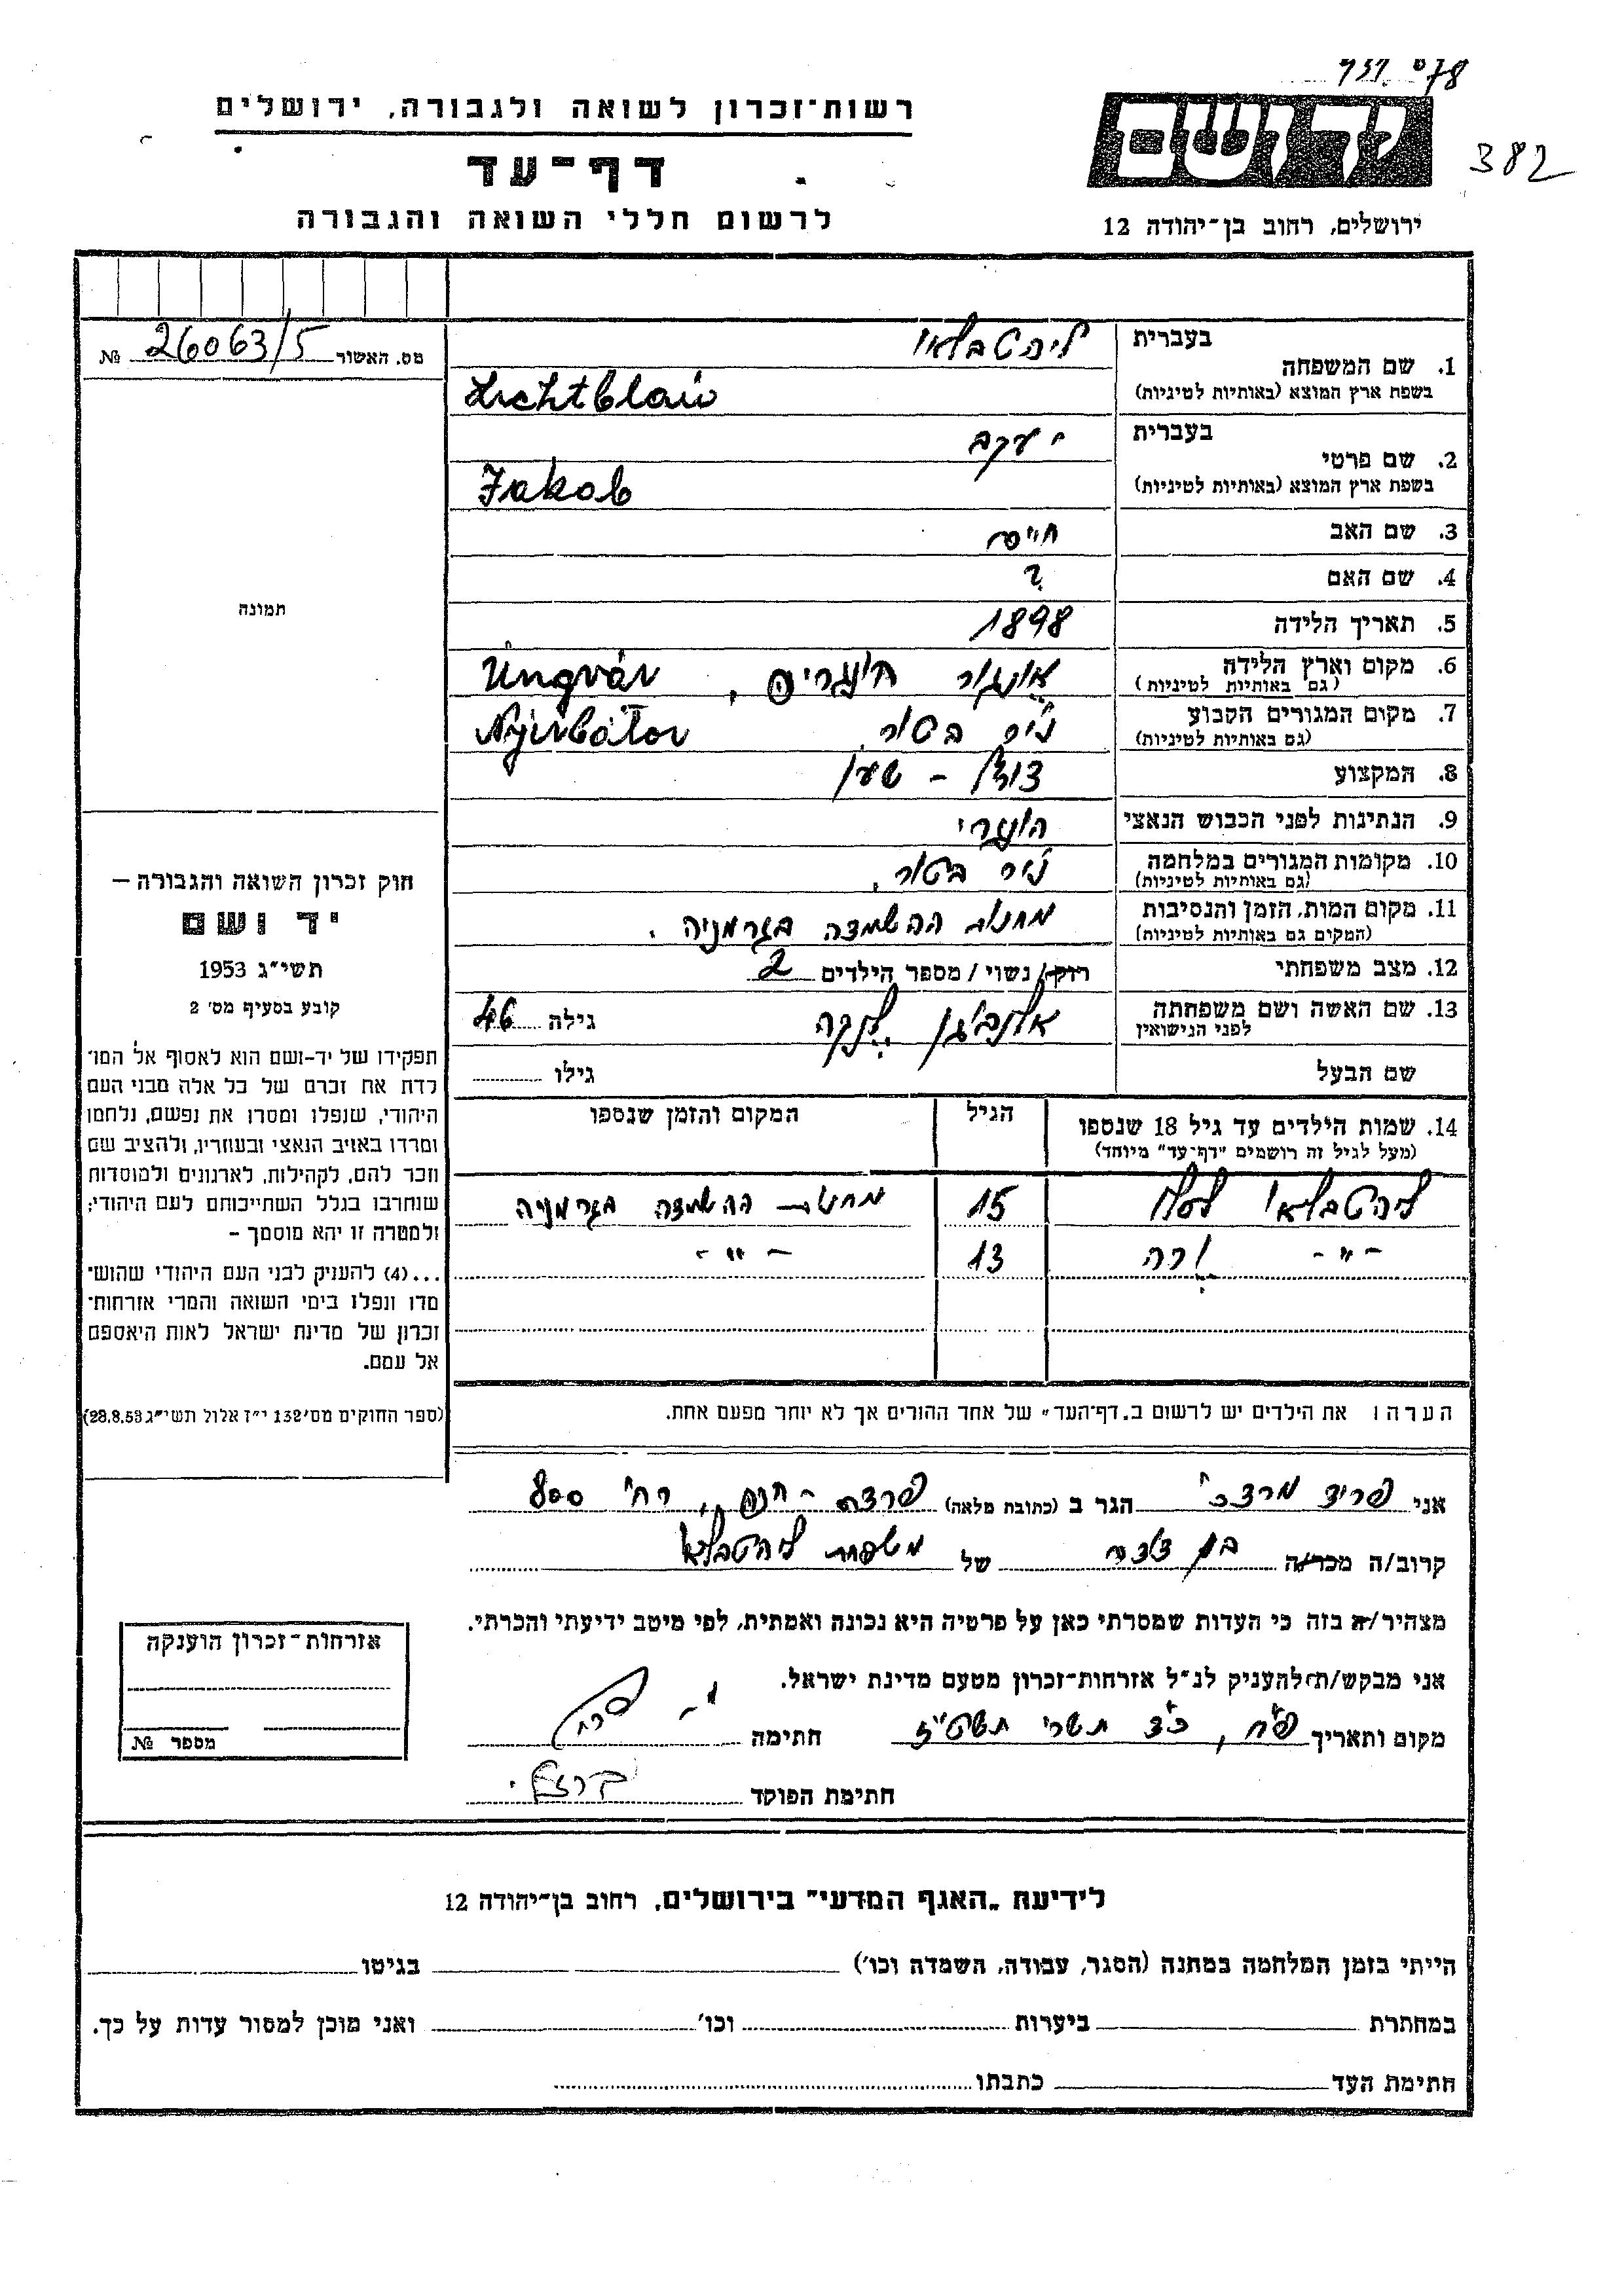 382
רשות־זכרון לשואה ולגבורה, ירושלים
דף־עד
לרשום חללי השואה והגבורה
ידושם
ירושלים, רחוב בן־יהודה 12
מס. האשור 26063/5 №
תמונה
בעברית
1. שם המשפחה
בשפת ארץ המוצא (באותיות לטיניות)
ליהטבלאו
Lichtblau
בעברית יעקב
2. שם פרטי
בשפת ארץ המוצא (באותיות לטיניות)
Jakob
3. שם האב חיים
4. שם האם ?
5. תאריך הלידה 1898
6. מקום וארץ הלידה
(גם באותיות לטיניות)
אונגור הונגריה, Ungvár
7. מקום המגורים הקבוע
(גם באותיות לטיניות)
ניר בטור Nyirbátor
8. המקצוע שען
9. הנתינות לפני הכבוש הנאצי הונגרי
10. מקומות המגורים במלחמה
(גם באותיות לטיניות)
ניר בטור.
11. מקום המות, הזמן והנסיבות
(המקום גם באותיות לטיניות)
מחנות ההשמדה בגרמניה.
12. מצב משפחתי רווק / נשוי / מספר הילדים 2
13. שם האשה ושם משפחתה
לפני הנישואין
גילה 46
שם הבעל גילו
14. שמות הילדים עד גיל 18 שנספו
(מעל לגיל זה רושמים "דף־עד" מיוחד)
הגיל
המקום והזמן שנספו
ליהטבלאו 15 מחנות ההשמדה בגרמניה
-"- 13 -"-
הערה: את הילדים יש לרשום ב„דף־העד" של אחד ההורים אך לא יותר מפעם אחת.
חוק זכרון השואה והגבורה –
יד ושם
תשי"ג 1953
קובע בסעיף מס' 2
תפקידו של יד-ושם הוא לאסוף אל המו־
לדת את זכרם של כל אלה מבני העם
היהודי, שנפלו ומסרו את נפשם, נלחמו
ומרדו באויב הנאצי ובעוזריו, ולהציב שם
וזכר להם, לקהילות, לארגונים ולמוסדות
שנחרבו בגלל השתייכותם לעם היהודי;
ולמטרה זו יהא מוסמך –
...(4) להעניק לבני העם היהודי שהוש־
מדו ונפלו בימי השואה והמרי אזרחות־
זכרון של מדינת ישראל לאות היאספם
אל עמם.
(ספר החוקים מס' 132 י"ז אלול תשי"ג 28.8.53)
אני פריד מרדכי הגר ב (כתובת מלאה) פרדס - חנה, רח' 800
קרוב/ה מכר/ה בן דודה של משפחת ליהטבלאו
מצהיר/ה בזה כי העדות שמסרתי כאן על פרטיה היא נכונה ואמתית, לפי מיטב ידיעתי והכרתי.
אני מבקש/ת להעניק לנ"ל אזרחות־זכרון מטעם מדינת ישראל.
מקום ותאריך פ"ח, כ"ד תשרי תשט"ז חתימה
חתימת הפוקד
אזרחות־זכרון הוענקה
מספר №
לידיעת „האגף המדעי" בירושלים, רחוב בן־יהודה 12
הייתי בזמן המלחמה במחנה (הסגר, עבודה, השמדה וכו') בגיטו
במחתרת ביערות וכו' ואני מוכן למסור עדות על כך.
חתימת העד כתבתו